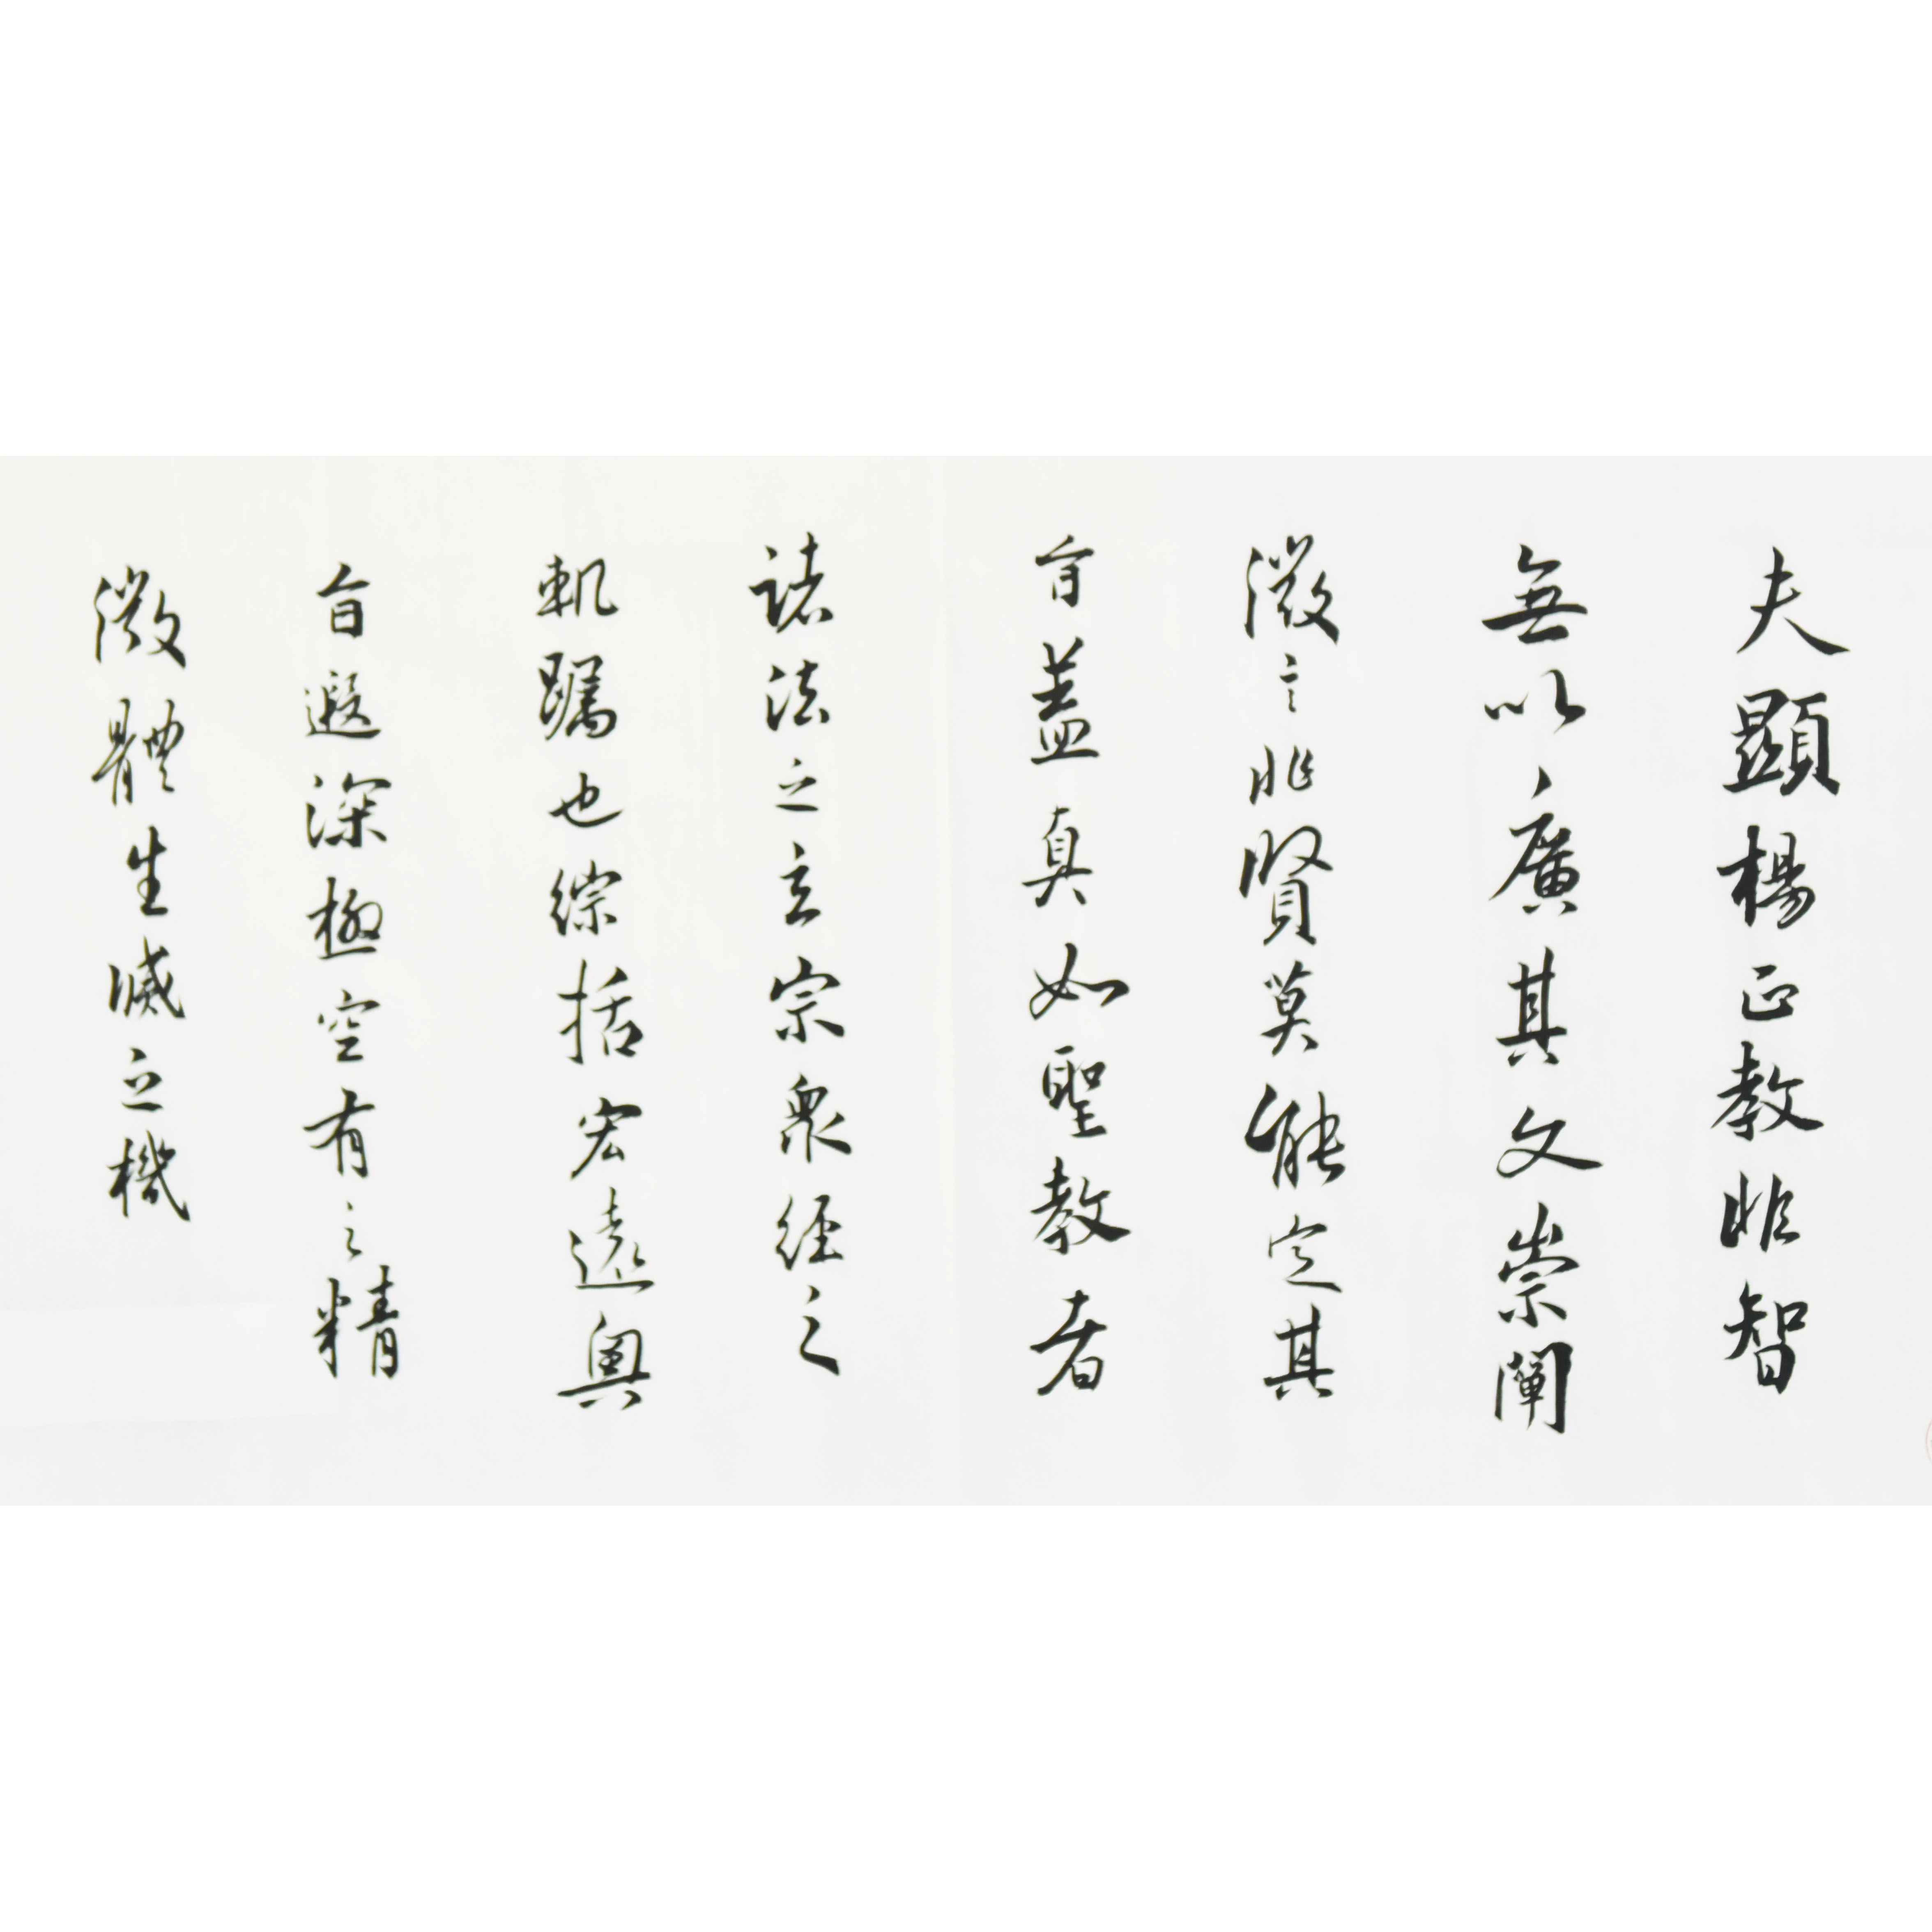 夫顯楊正教非智
無以廣其文崇闡
微言非賢莫能定其
旨蓋真如聖教者
諸法之玄宗衆經之
軌躅也綜括宏遠奧
旨遐深極空有之精
微體生滅之機